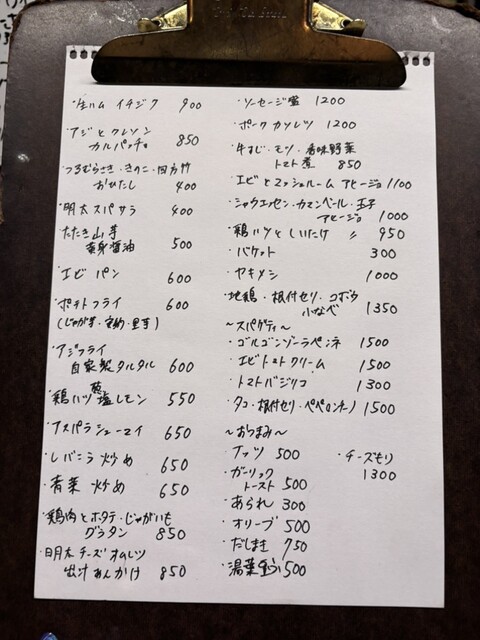 ・生ハム イチジク 900
・アジとクレソン
カルパッチョ 850
・つるむらさき・きのこ・四方竹
おひたし 400
・明太スパサラ 400
・たたき山芋
薬身醤油 500
・エビパン 600
・ポテトフライ 600
(じゃが芋・安納・里芋)
・アジフライ
自家製タルタル 600
・鶏ハツ葱塩レモン 550
・アスパラシューマイ 650
・レバニラ炒め 650
・青菜炒め 650
・鶏肉とホタテ・じゃがいも
グラタン 850
・明太チーズオムレツ
出汁あんかけ 850
・ソーセージ盛 1200
・ポークカツレツ 1200
・牛すじ・モツ・香味野菜
トマト煮 850
・エビとマッシュルームアヒージョ 1100
・シャウエッセン・カマンベール・玉子
アヒージョ 1000
・鶏ハツとしいたけ 〃 950
・バケット 300
・ヤキメシ 1000
・地鶏・根付セリ・ゴボウ
小なべ 1350
〜スパゲティ〜
・ゴルゴンゾーラペンネ 1500
・エビトマトクリーム 1500
・トマトバジリコ 1300
・タコ・根付セリ・ペペロンチーノ 1500
〜おつまみ〜
・ナッツ 500
・ガーリック
トースト 500
・あられ 300
・オリーブ 500
・だしまき 750
・湯葉 500
・チーズもり
1300